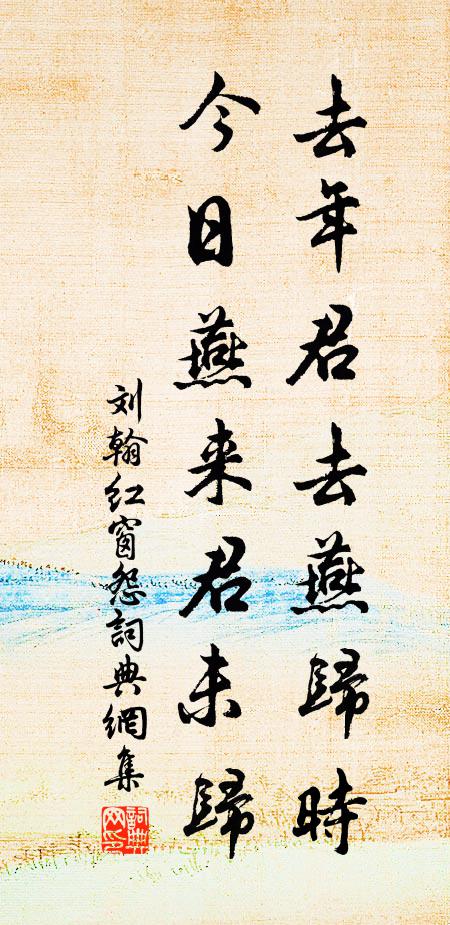 去年君去燕歸時
今日燕来君未歸
刘翰红窗怨詞典網集